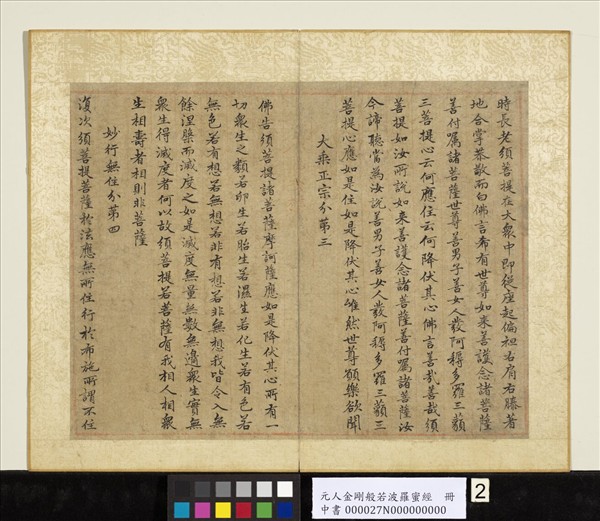 時長老須菩提在大衆中即從座起偏袒右肩右膝著
地合掌恭敬而白佛言希有世尊如来善護念諸菩薩
善付囑諸菩薩世尊善男子善女人發阿耨多羅三藐
三菩提心云何應住云何降伏其心佛言善哉善哉須
菩提如汝所說如来善護念諸菩薩善付囑諸菩薩汝
今諦聽當為汝說善男子善女人發阿耨多羅三藐三
菩提心應如是住如是降伏其心唯然世尊願樂欲聞
大乘正宗分第三
佛告須菩提諸菩薩摩訶薩應如是降伏其心所有一
切衆生之類若卵生若胎生若濕生若化生若有色若
無色若有想若無想若非有想若非無想我皆令入無
餘涅槃而滅度之如是滅度無量無數無邊衆生實無
衆生得滅度者何以故須菩提若菩薩有我相人相衆
生相壽者相則非菩薩
妙行無住分第四
復次須菩提菩薩於法應無所住行於布施所謂不住
元人金剛般若波羅蜜經 冊
中書 000027N000000000
2